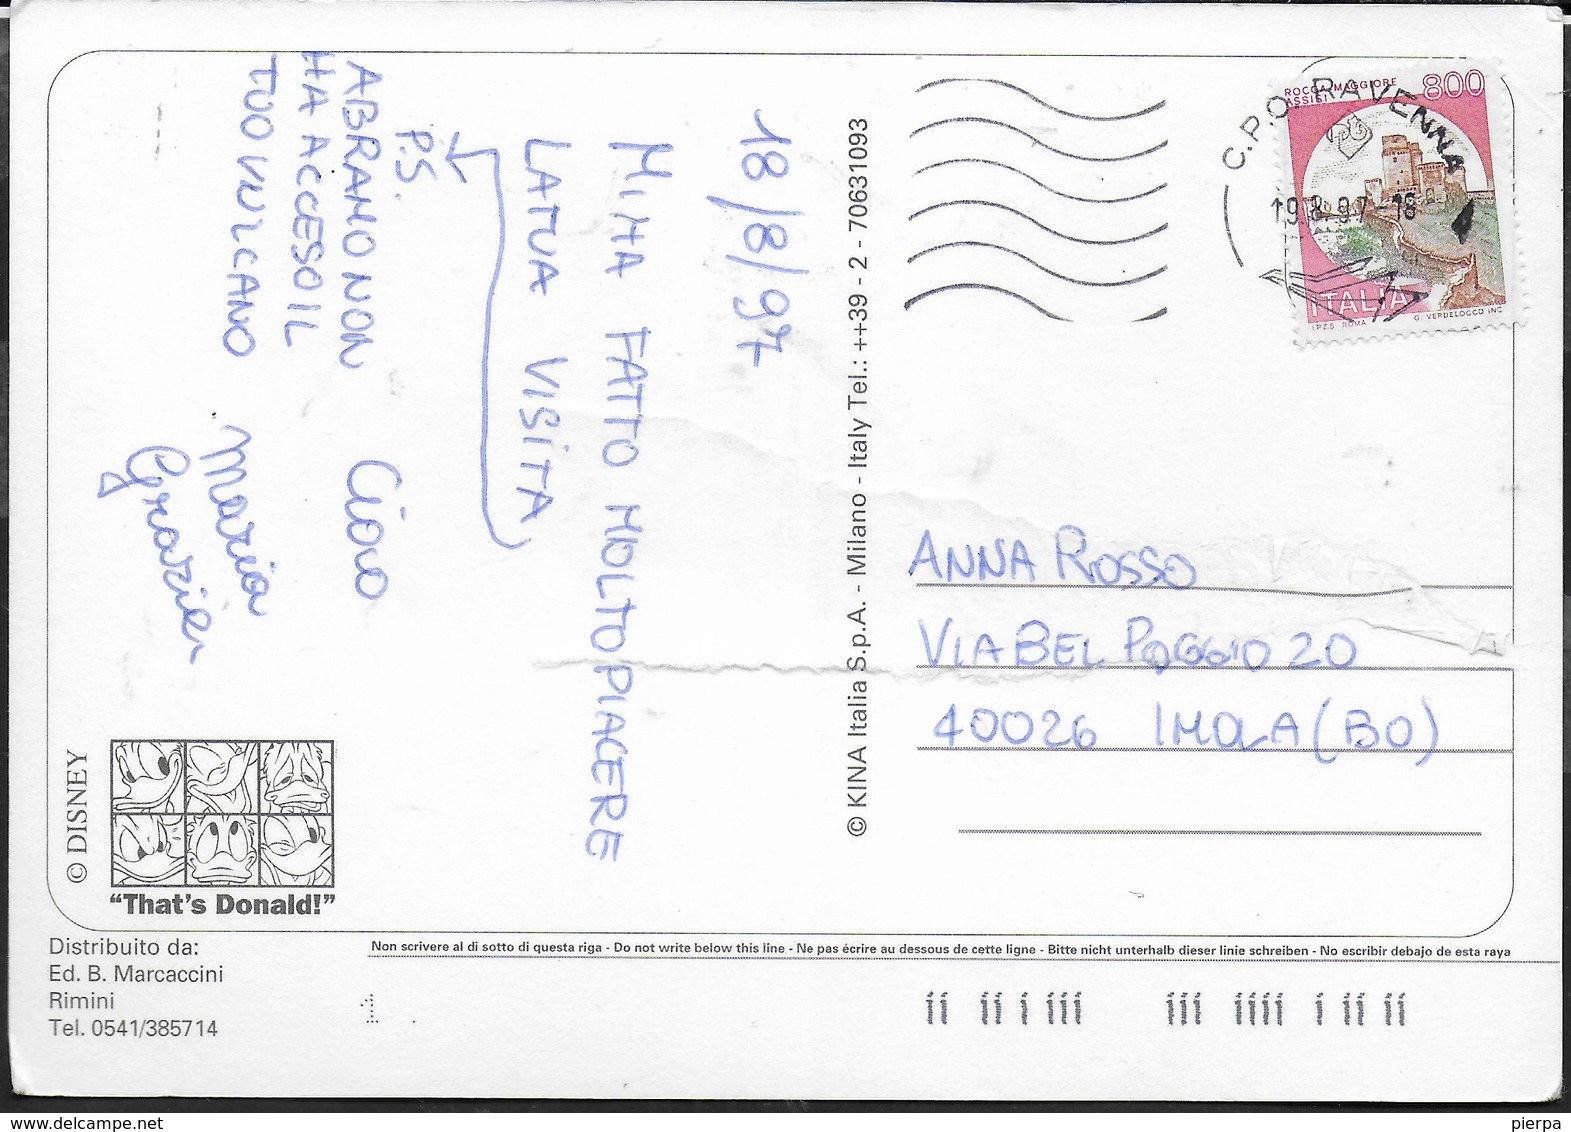 18/8/97
MI HA FATTO MOLTO PIACERE
LA TUA VISITA
P.S.
ABRAMO NON
HA ACCESO IL
TUO VULCANO
Ciao
Maria
Grazia
© KINA Italia S.p.A. - Milano - Italy Tel.: ++39 - 2 - 70631093
C.P.O. RAVENNA
19.8.97-18
ROCCA MAGGIORE
ASSISI
800
ITALIA
I.P.Z.S. ROMA
G. VERDELOCCO INC.
ANNA ROSSO
VIA BEL POGGIO 20
40026 IMOLA (BO)
© DISNEY
"That's Donald!"
Distribuito da:
Ed. B. Marcaccini
Rimini
Tel. 0541/385714
Non scrivere al di sotto di questa riga - Do not write below this line - Ne pas écrire au dessous de cette ligne - Bitte nicht unterhalb dieser linie schreiben - No escribir debajo de esta raya
1
pierpa